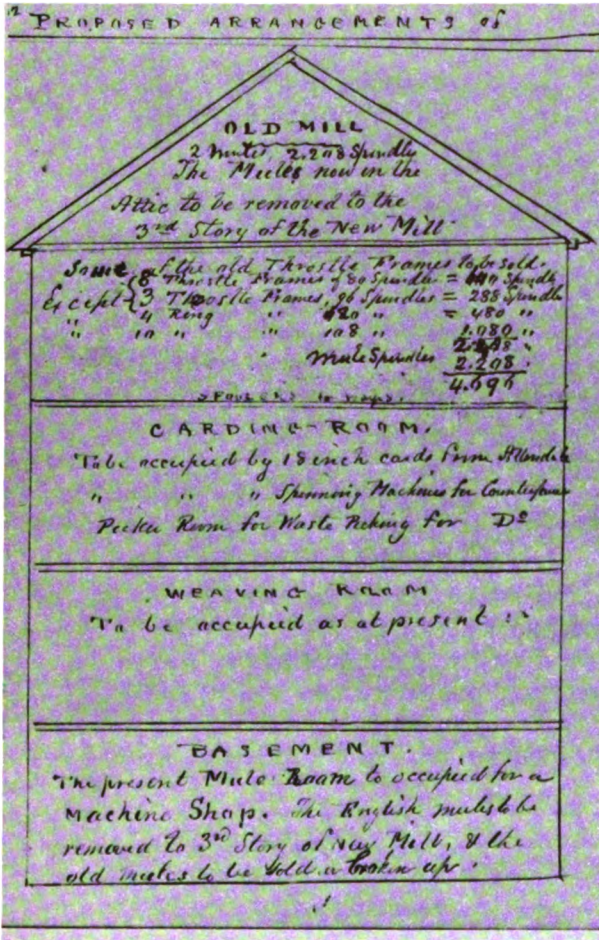 2 PROPOSED ARRANGEMENTS of
OLD MILL
2 Mules, 2.208 Spindles
The Mules now in the
Attic to be removed to the
3rd Story of the New Mill.
Some of the old Throstle Frames to be sold.
Except { 8 Throstle Frames of 80 Spindles = 640 Spindls
3 Throstle Frames, 96 Spindles = 288 Spindls
" 4 Ring " 120 " = 480 "
" 10 " " 108 " 1.080 "
2.488 "
Mule Spindles 2.208
4.696
CARDING-ROOM.
To be occupied by 18 inch cards from
" " " Spinning Machines for
Picker Room for Waste Picking for Do
WEAVING ROOM
To be occupied as at present
BASEMENT.
The present Mule Room to occupied for a
Machine Shop. The English mules to be
removed to 3rd Story of New Mill, & the
old mules to be sold or broken up.